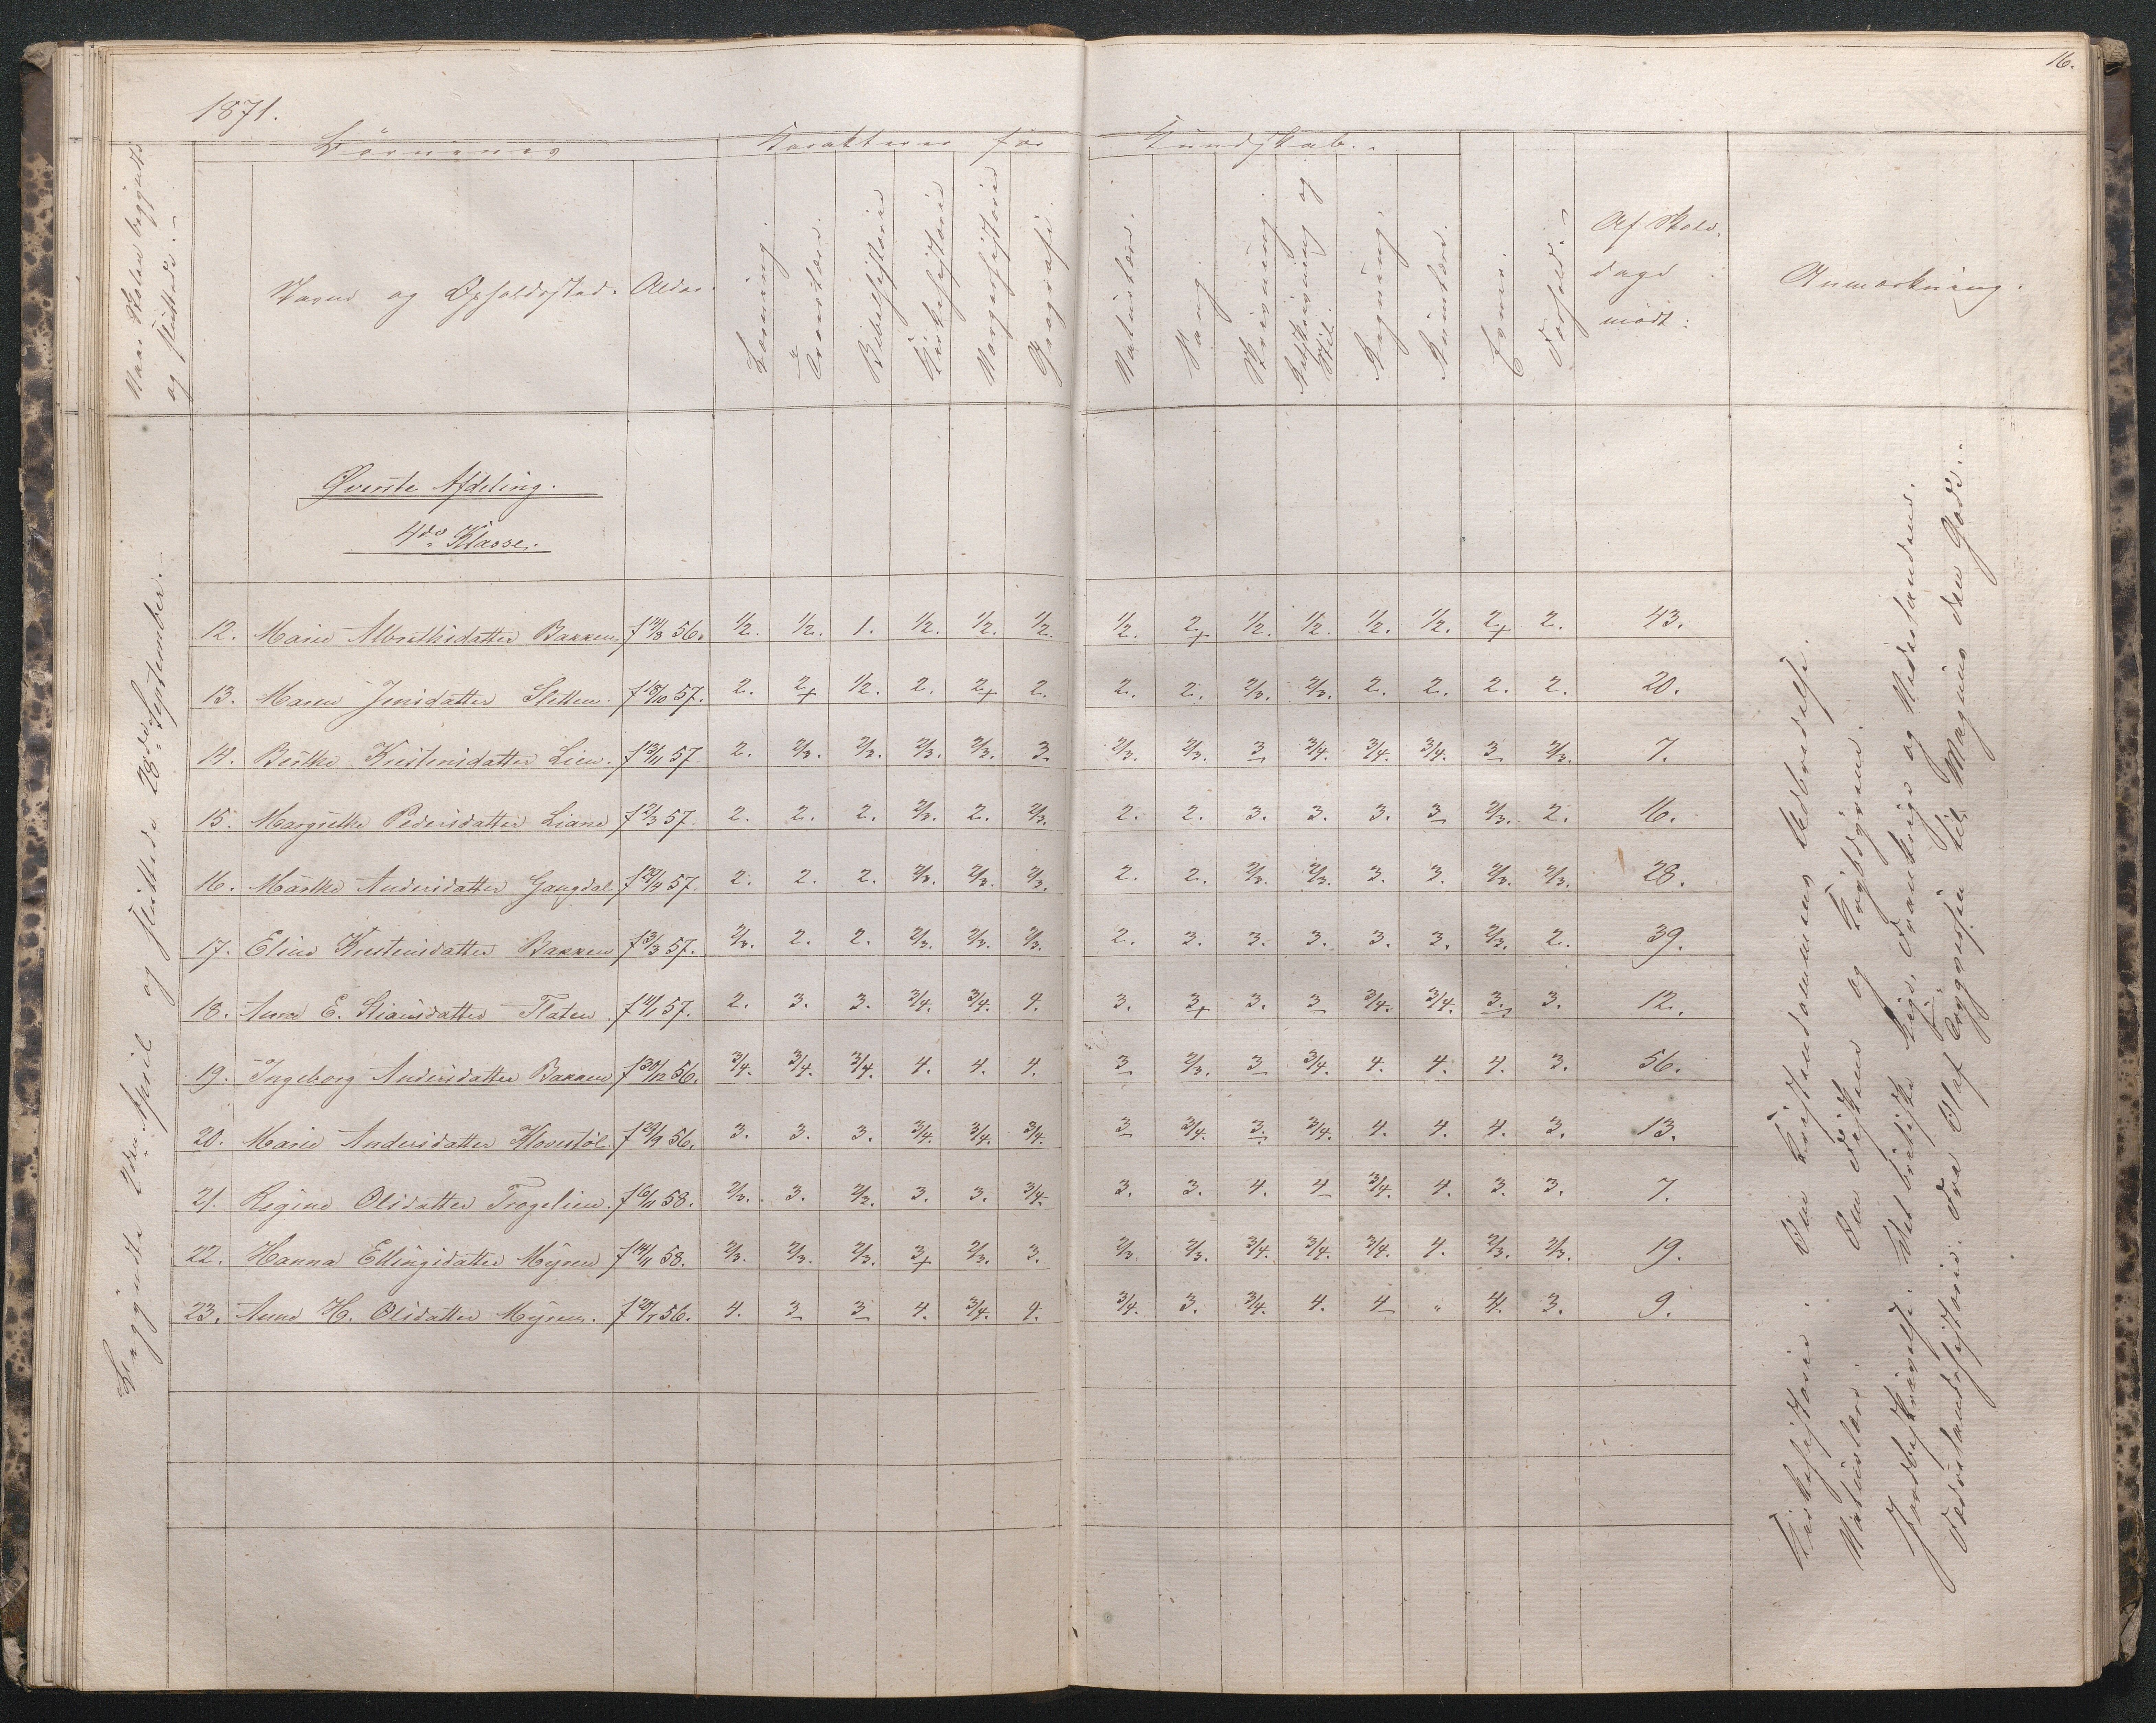 16.
1871.
Naar Skolen begyndte
og sluttede.
Børnenes
Karakterer for
Kundskab.
Navne og Opholdssted.
Alder.
Læsning.
Troeslære.
Bibelhistorie
Kirkehistorie
Norgeshistorie
Geografi.
Naturlære.
Sang.
Skrivning.
Retskrivning og
Stil.
Regning.
Evner.
Forhold.
Af Skole-
dage
mødt:
Anmærkning.
Øverste Afdeling.
4de Klasse.
Begyndte 2den April og sluttede 28de September.
12. Marie Albrethsdatter Bakken f 14/8 56. 1/2. 1/2. 1. 1/2. 1/2. 1/2. 1/2. 2+ 1/2. 1/2. 1/2. 1/2. 2+ 2. 43.
13. Maren Jensdatter Sletten. f 18/10 57. 2. 2+ 1/2. 2. 2+ 2. 2. 2. 2/3. 2/3. 2. 2. 2. 2. 20.
14. Berthe Kristensdatter Lien. f 13/11 57. 2. 2/3. 2/3. 2/3. 2/3. 3. 2/3. 2/3. 3 3/4. 3/4. 3/4. 3 2/3. 7.
15. Margrethe Pedersdatter Liane f 2/3 57. 2. 2. 2. 2/3. 2. 2/3. 2. 2. 3. 3. 3. 3 2/3. 2. 16.
16. Marthe Andersdatter Gangdal f 29/4 57. 2. 2. 2. 2/3. 2/3. 2/3. 2. 2. 2/3. 2/3. 3. 3. 2/3. 2/3. 28.
17. Eline Kristensdatter Bakken f 3/3 57. 2/3. 2. 2. 2/3. 2/3. 2/3. 2. 3. 3. 3. 3. 3. 2/3. 2. 39.
18. Anne E. Stiansdatter Flaten. f 11/1 57. 2. 3. 3. 3/4. 3/4. 4. 3. 3+ 3. 3 3/4. 3/4. 3. 3. 12.
19. Ingeborg Andersdatter Bakken f 30/12 56. 3/4. 3/4. 3/4. 4. 4. 4. 3 2/3. 3 3/4. 4. 4. 4. 3. 56.
20. Marie Andersdatter Hovestøl f 29/9 56. 3. 3. 3. 3/4. 3/4. 3/4. 3 3/4. 3. 3/4. 4. 4. 4. 3. 13.
21. Regine Olsdatter Trogelien. f 6/11 58. 2/3. 3. 2/3. 3. 3. 3/4. 3. 3. 4. 4 3/4. 4. 3. 3. 7.
22. Hanna Ellingsdatter Myren f 14/11 58. 2/3. 2/3. 2/3. 3+ 2/3. 3. 2/3 2/3. 3/4. 3/4. 3/4. 4. 2/3. 2/3. 19.
23. Anne H. Olsdatter Myren. f 29/7 56. 4. 3 3 4. 3/4. 4. 3/4. 3. 3/4. 4. 4 " 4. 3. 9.
Kirkehistorie: Om Kristendommens Udbredelse.
Naturlære: Om Fiskene og Krybdyrene.
Jordbeskrivelse: Det britiske Rige, Frankrige og Nederlandene.
Fædrelandshistorie: Fra Olaf til Magnus den Gode.